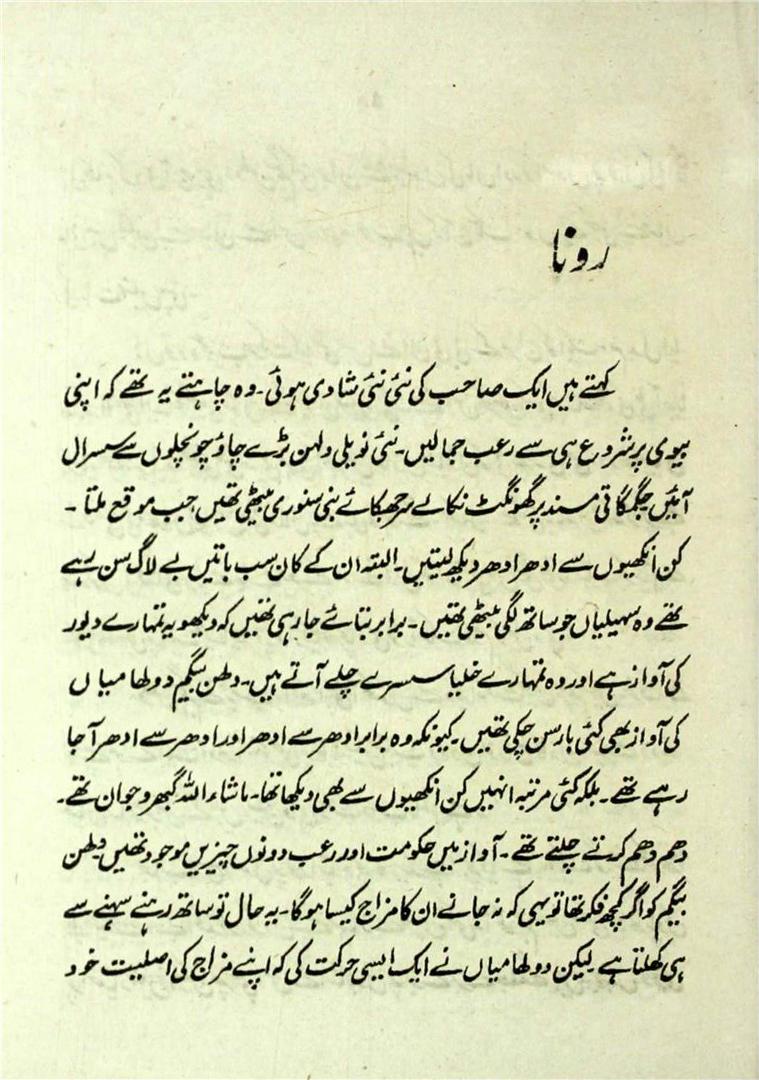 رونا
کہتے ہیں ایک صاحب کی نئی نئی شادی ہوئی۔ وہ چاہتے یہ تھے کہ اپنی
بیوی پر شروع ہی سے رعب جمالیں۔ نئی نویلی دلہن بڑے چاؤ چونچلوں سے سسرال
آئیں جگمگاتی مسند پر گھونگٹ نکالے سرجھکائے بنی سنوری بیٹھی تھیں جب موقع ملتا۔
کن انکھیوں سے ادھر ادھر دیکھ لیتیں۔ البتہ ان کے کان سب باتیں بے لاگ سن رہے
تھے وہ سہیلیاں جو ساتھ لگی بیٹھی تھیں۔ برابر بتائے جا رہی تھیں کہ دیکھو یہ تمہارے دیور
کی آواز ہے اور وہ تمہارے خلیا سسرے چلے آتے ہیں۔ دلھن بیگم دولھا میاں
کی آواز بھی کئی بار سن چکی تھیں۔ کیونکہ وہ برابر ادھر سے ادھر اور ادھر سے ادھر آ جا
رہے تھے۔ بلکہ کئی مرتبہ انہیں کن انکھیوں سے بھی دیکھا تھا۔ ماشاء اللہ گبھرو جوان تھے۔
دھم دھم کرتے چلتے تھے۔ آواز میں حکومت اور رعب دونوں چیزیں موجود تھیں دلھن
بیگم کو اگر کچھ فکر تھا تو یہی کہ نہ جانے ان کا مزاج کیسا ہوگا۔ یہ حال تو ساتھ رہنے سہنے سے
ہی کھلتا ہے لیکن دولھا میاں نے ایک ایسی حرکت کی کہ اپنے مزاج کی اصلیت خود